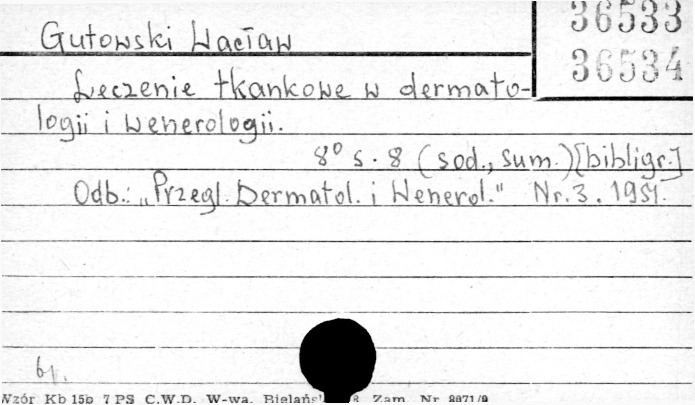 36533
Gutowski Wacław
36534
Leczenie tkankowe w dermato-
logii i wenerologii.
8° s. 8 (sod., sum.) [bibligr.]
Odb.: „Przegl. Dermatol. i Wenerol." Nr. 3. 1951.
Wzór Kb 15b 7 PS C.W.D. W-wa, Bielańs 8 Zam. Nr 8971/9